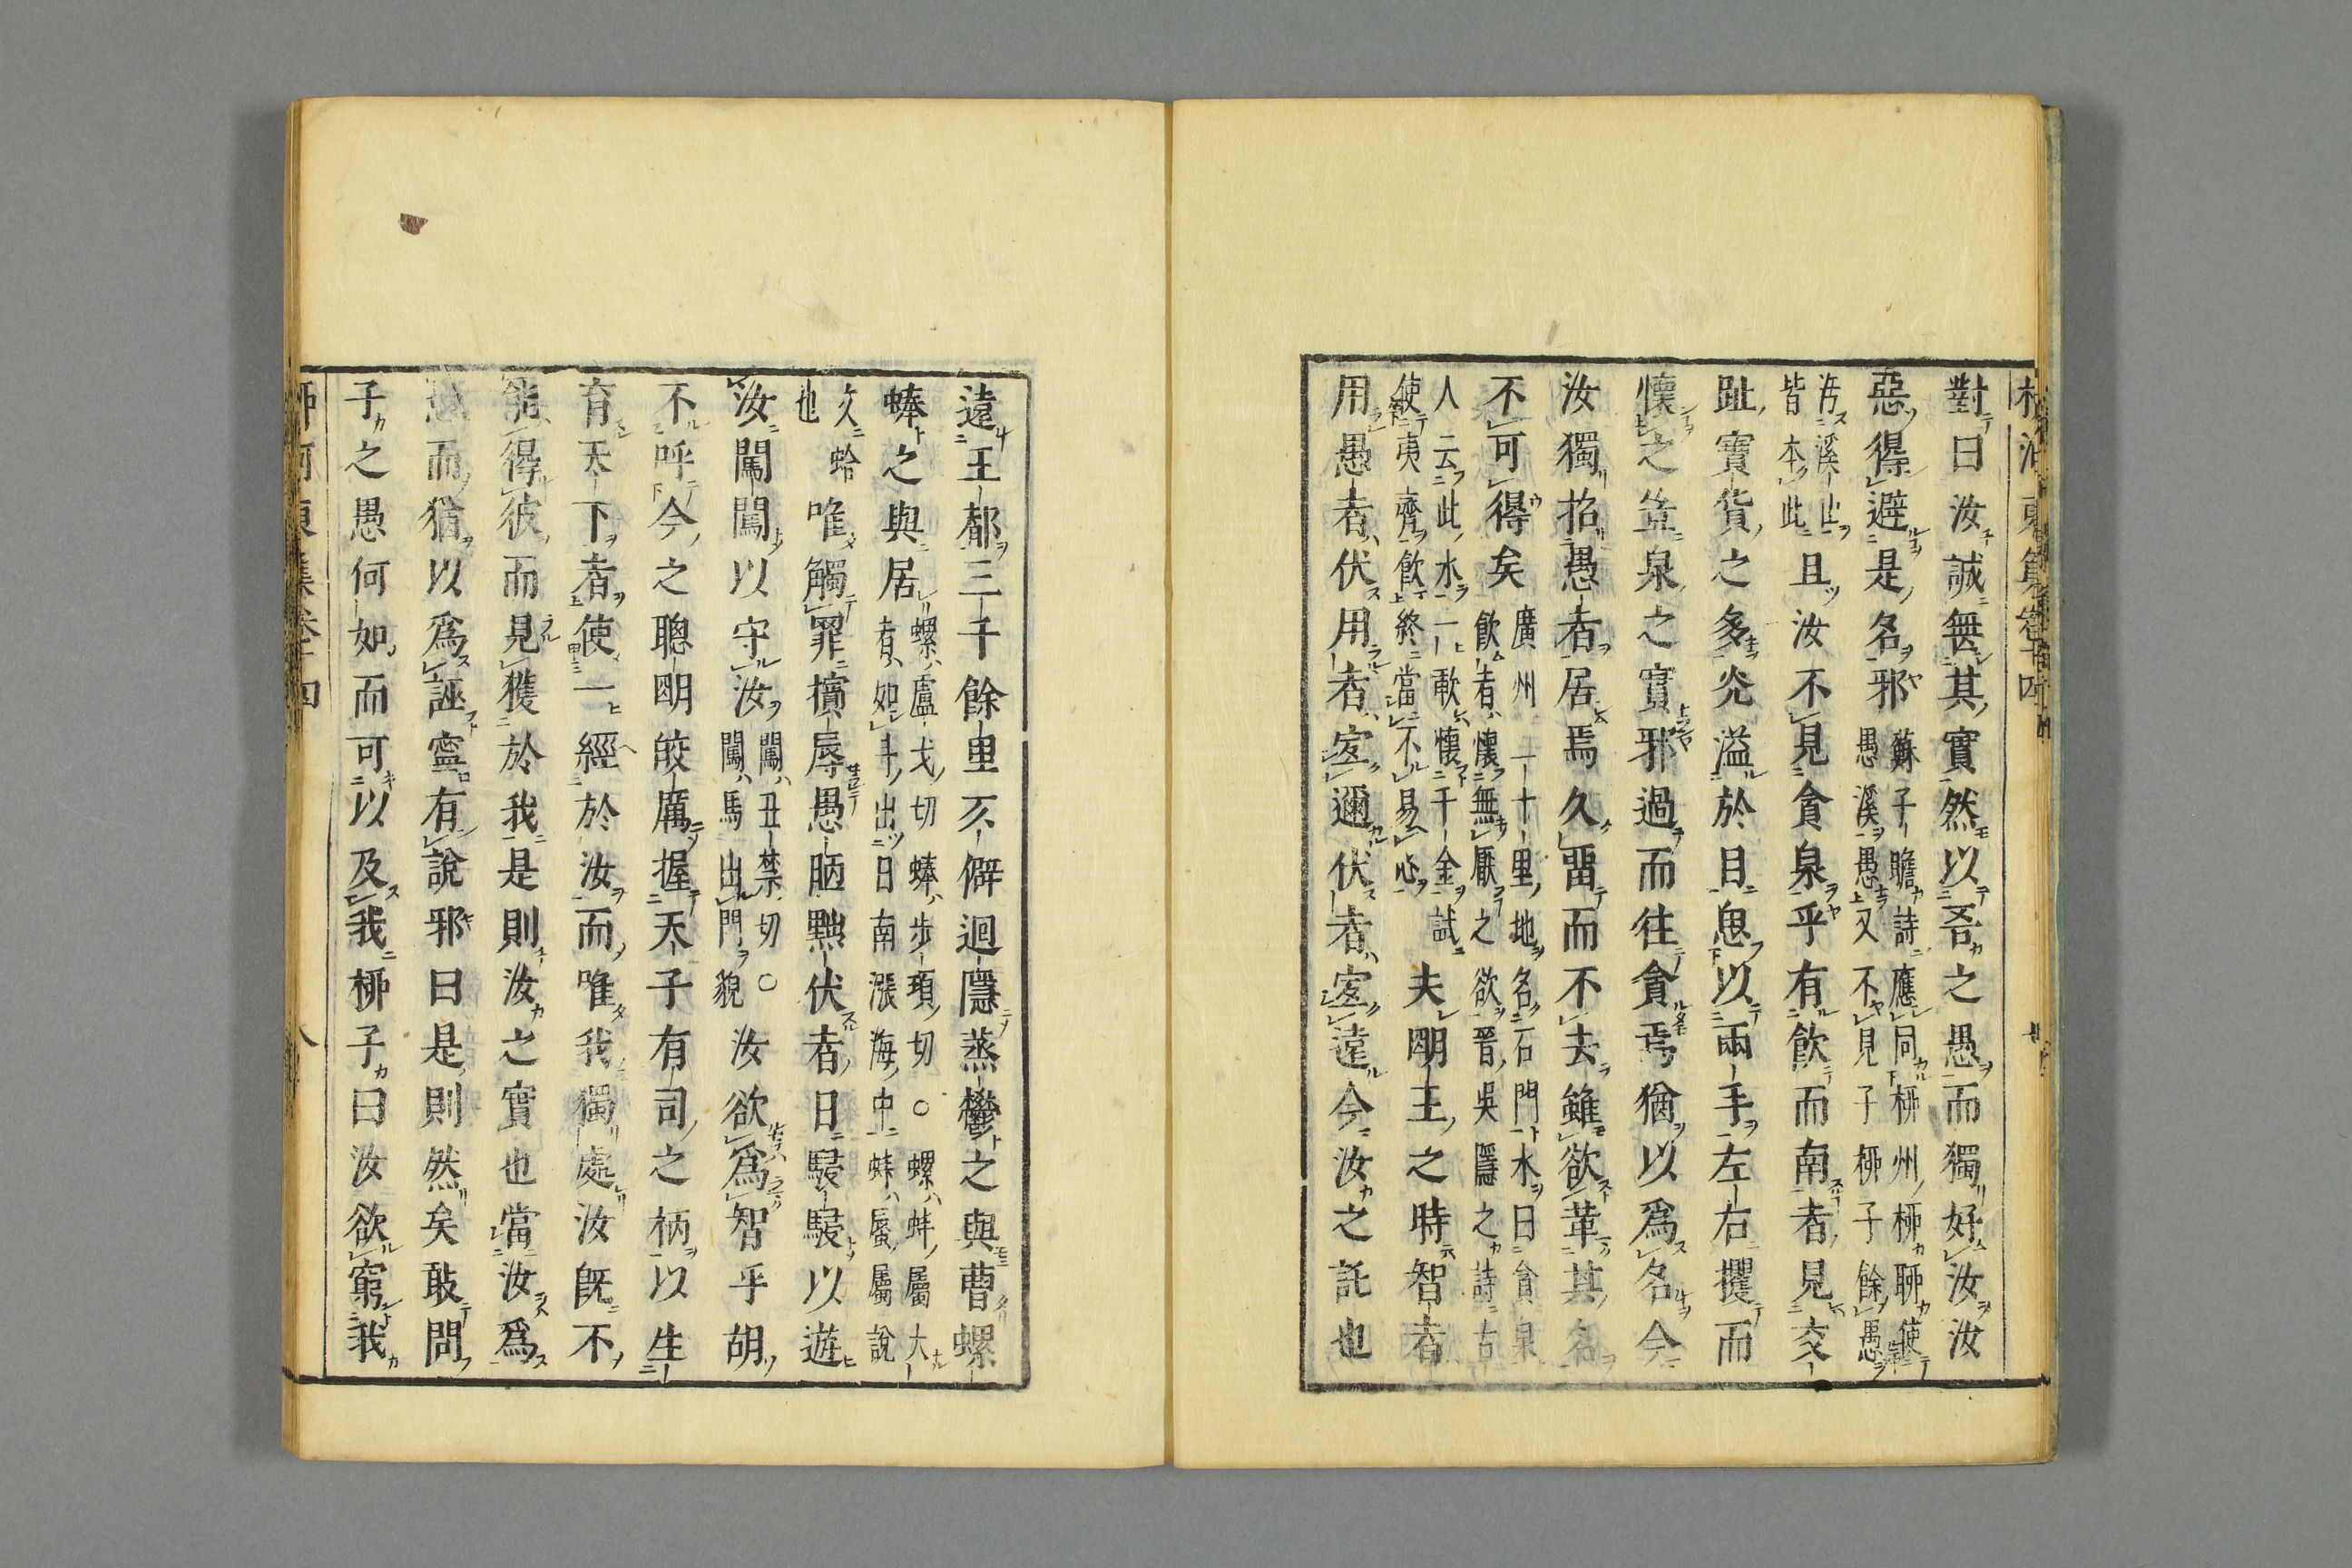 對曰汝誠無其實然以吾之愚而獨好汝汝
惡得避是名邪
蘇子瞻詩應同柳州柳聊使
愚溪愚又不見子柳子餘愚
污溪山
皆本此
且汝不見貪泉乎有飲而南者見交
趾寶貨之多光溢於目思以兩手左右攫而
懷之豈泉之實邪過而往貪焉猶以爲名今
汝獨招愚者居焉久畱而不去雖欲革其名
不可得矣
廣州二十里地名石門水曰貪泉
飲者懷無厭之欲晉吳隱之詩古
人云此水一歃懷千金試
使夷齊飲終當不易心
夫明王之時智者
用愚者伏用者宐邇伏者宐遠今汝之託也
遠王都三千餘里仄僻迴隱蒸鬱之與曹螺
蜯之與居
螺盧戈切蜯步項切○螺蚌屬大
者如斗出日南漲海中蚌蜃屬說
文蛤
也
唯觸罪擯辱愚陋黜伏者日駸駸以遊
汝闖闖以守汝
闖丑禁切○
闖馬出門貌
汝欲爲智乎胡
不呼今之聰明皎厲握天子有司之柄以生
育天下者使一經於汝而唯我獨處汝旣不
能得彼而見獲於我是則汝之實也當汝爲
愚而猶以爲誣寧有說邪曰是則然矣敢問
子之愚何如而可以及我柳子曰汝欲窮我
柳河東集卷十四